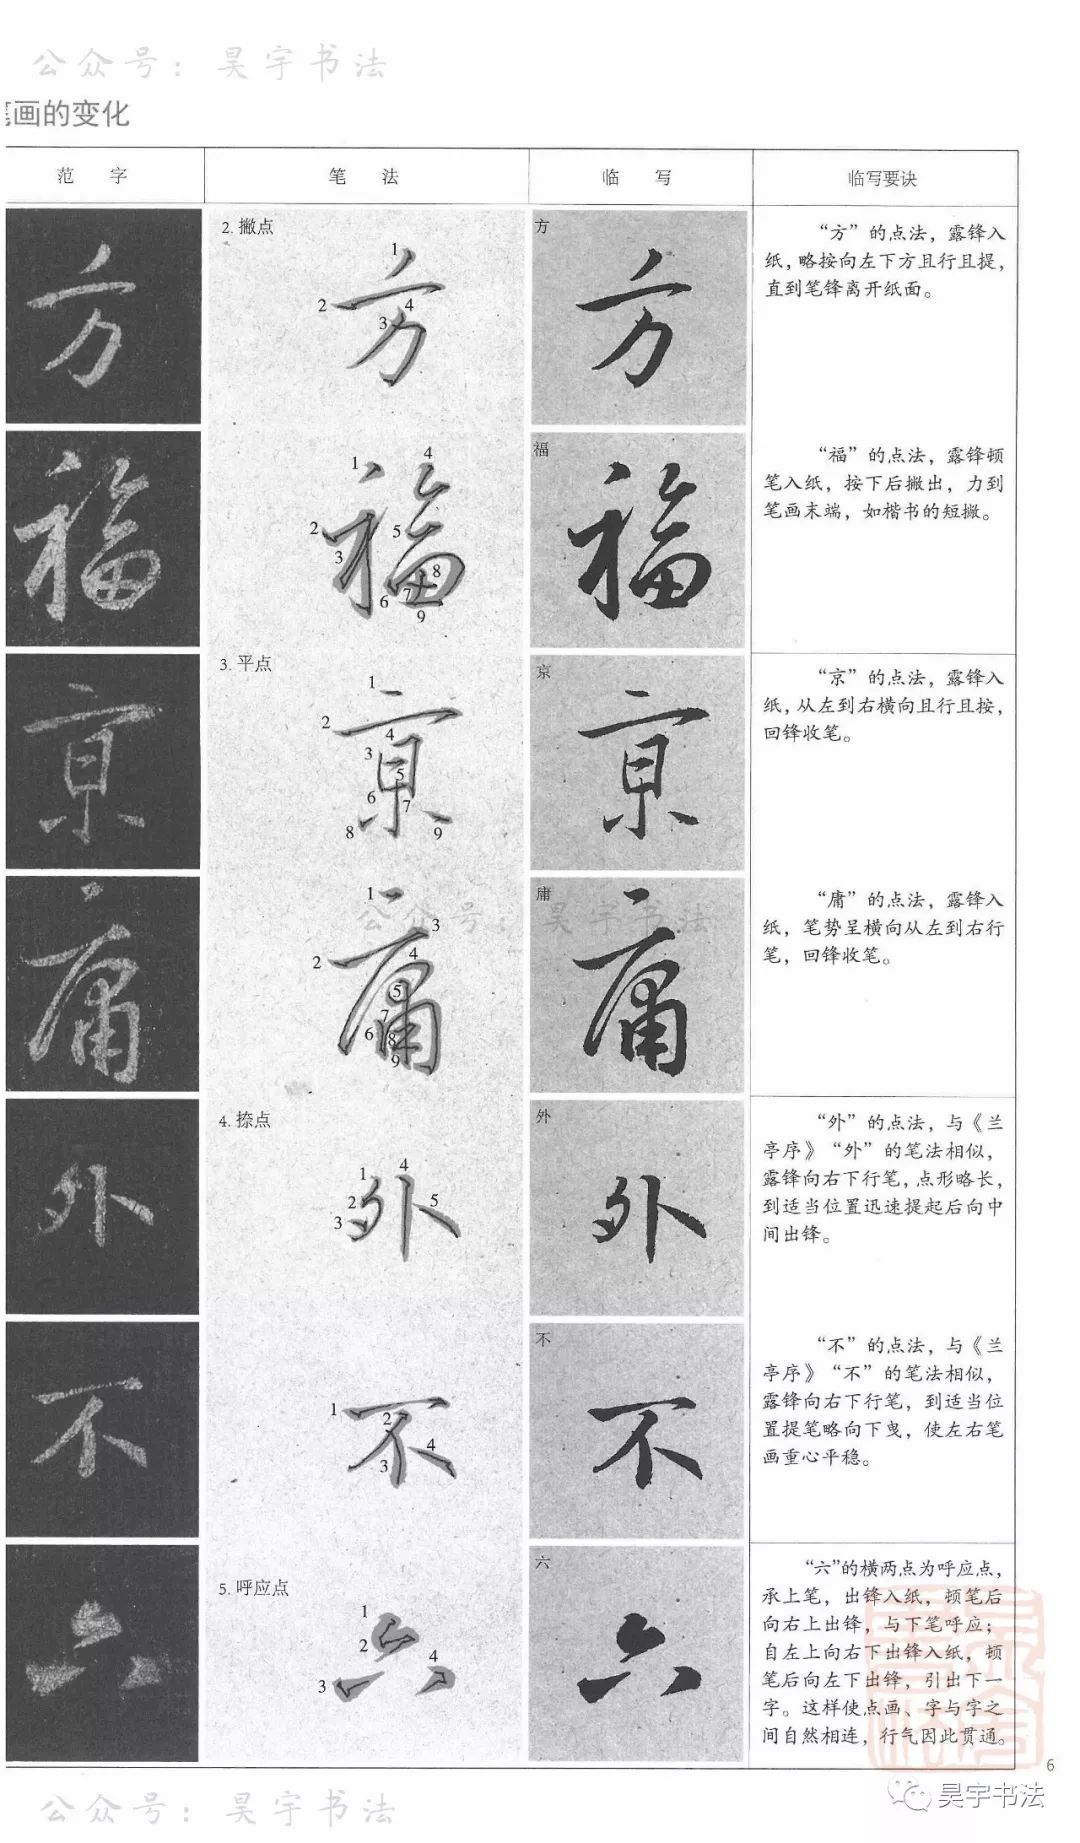 公众号：昊宇书法
笔画的变化
范 字
笔 法
临 写
临写要诀
2. 撇点
1
2
3
4
方
“方”的点法，露锋入
纸，略按向左下方且行且提，
直到笔锋离开纸面。
1
4
2
3
5
8
7
6
9
福
“福”的点法，露锋顿
笔入纸，按下后撇出，力到
笔画末端，如楷书的短撇。
3. 平点
1
2
4
3
5
6
7
8
9
京
“京”的点法，露锋入
纸，从左到右横向且行且按，
回锋收笔。
1
3
2
4
5
7
6
8
9
庸
公众号：昊宇书法
“庸”的点法，露锋入
纸，笔势呈横向从左到右行
笔，回锋收笔。
4. 捺点
1
4
2
5
3
外
“外”的点法，与《兰
亭序》“外”的笔法相似，
露锋向右下行笔，点形略长，
到适当位置迅速提起后向中
间出锋。
1
2
4
3
不
“不”的点法，与《兰
亭序》“不”的笔法相似，
露锋向右下行笔，到适当位
置提笔略向下曳，使左右笔
画重心平稳。
5. 呼应点
1
2
4
3
六
“六”的横两点为呼应点，
承上笔，出锋入纸，顿笔后
向右上出锋，与下笔呼应；
自左上向右下出锋入纸，顿
笔后向左下出锋，引出下一
字。这样使点画、字与字之
间自然相连，行气因此贯通。
6
昊宇书法
公众号：昊宇书法